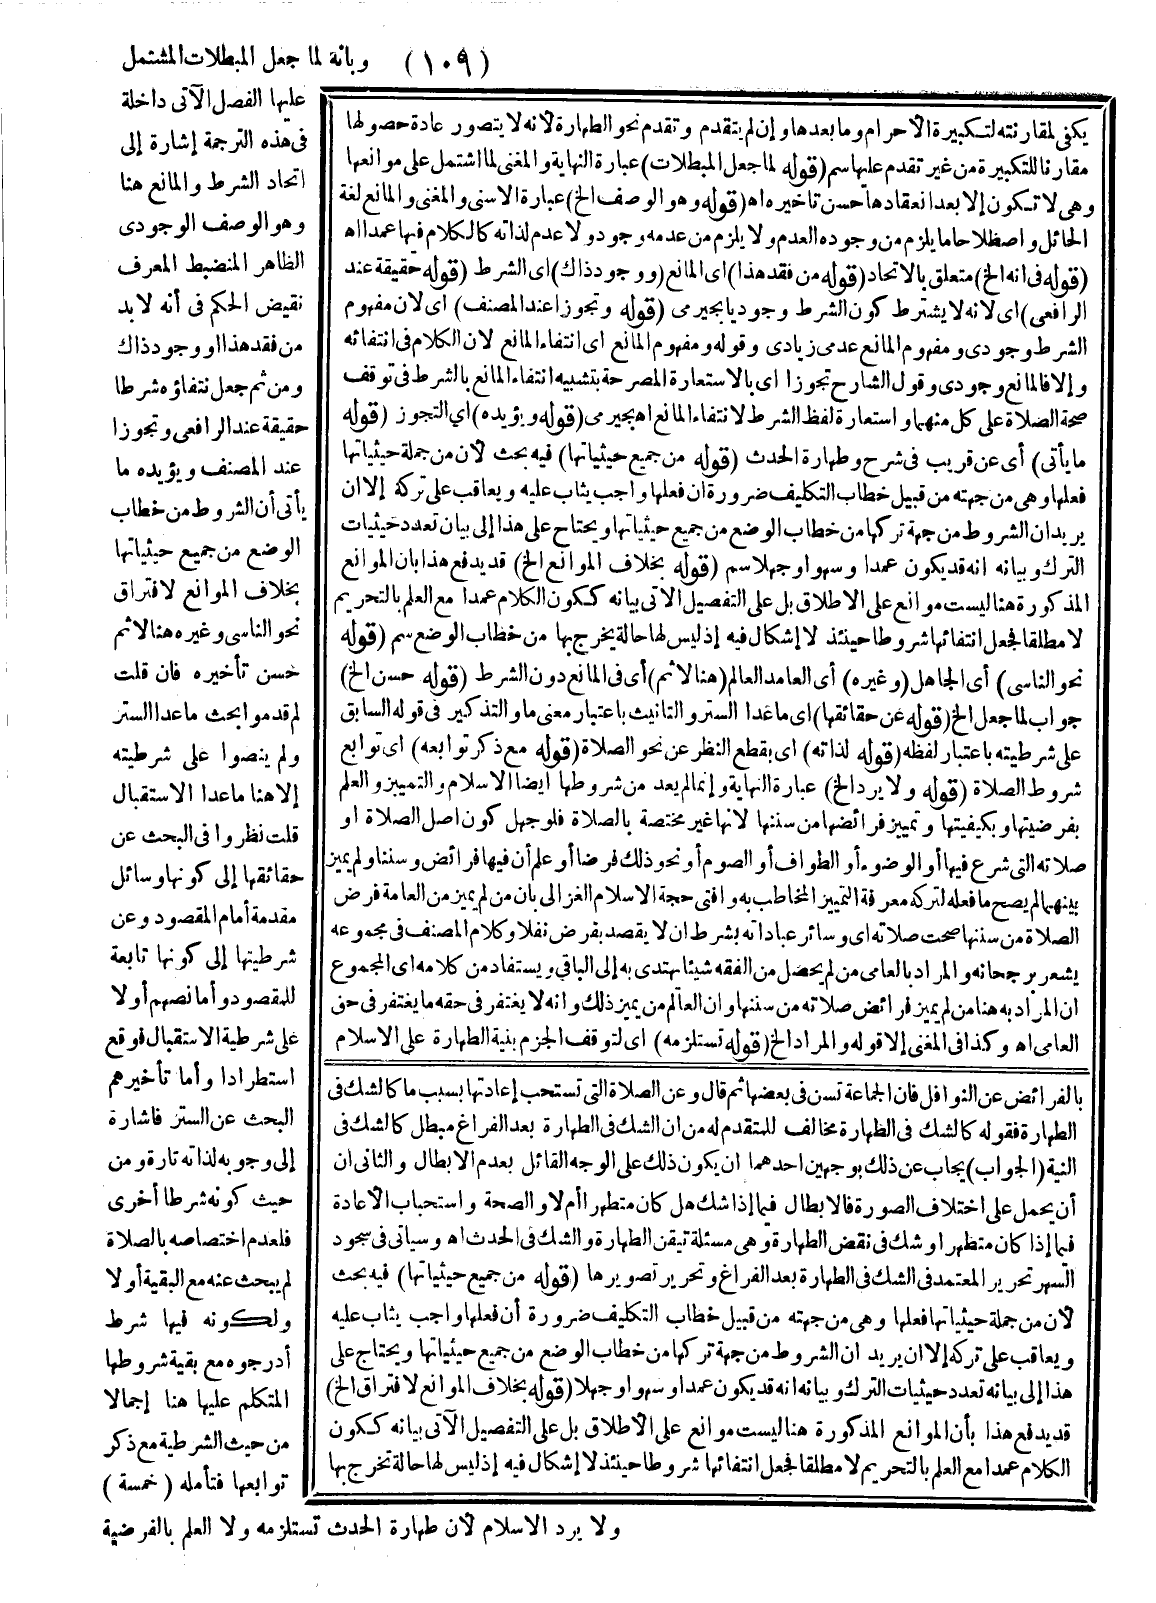 (١٠٩) وبانة لما جعل المبطلات المشتمل
عليها الفصل الآتى داخلة
فى هذه الترجمة إشارة إلى
اتحاد الشرط والمانع هنا
وهو الوصف الوجودى
الظاهر المنضبط المعرف
نقيض الحكم فى أنه لا بد
من فقد هذا و وجود ذاك
ومن ثم جعل نتفاؤه شرطا
حقيقة عند الرافعى وتجوزا
عند المصنف ويؤيده ما
يأتى أن الشروط من خطاب
الوضع من جميع حيثياتها
بخلاف الموانع لافتراق
نحو الناسى وغيره هنا لاثم
حسن تأخيره فان قلت
لم قدموا بحث ماعدا الستر
ولم ينصوا على شرطيته
إلا هنا ماعدا الاستقبال
قلت نظروا فى البحث عن
حقائقها إلى كونها وسائل
مقدمة أمام المقصود وعن
شرطيتها إلى كونها تابعة
للمقصود وأما نصهم أولا
على شرطية الاستقبال فوقع
استطرادا وأما تأخيرهم
البحث عن الستر فاشارة
إلى وجوبه لذاته تارة ومن
حيث كونه شرطا أخرى
فلعدم اختصاصه بالصلاة
لم يبحث عنه مع البقية أولا
ولكونه فيها شرط
أدرجوه مع بقية شروطها
المتكلم عليها هنا إجمالا
من حيث الشرطية مع ذكر
توابعها فتأمله (خمسة)
ولا يرد الاسلام لأن طهارة الحدث تستلزمه ولا العلم بالفرضية
يكفى لمقارنته لتكبيرة الاحرام وما بعدها وإن لم يتقدم وتقدم نحو الطهارة لانه لا يتصور عادة حصولها
مقارنا للتكبيرة من غير تقدم عليها سم (قوله لما جعل المبطلات) عبارة النهاية والمغنى لما اشتمل على موانعها
وهى لا تكون إلا بعد انعقادها حسن تاخيره اه (قوله وهو الوصف الخ) عبارة الاسنى والمغنى والمانع لغة
الحائل واصطلاحا ما يلزم من وجوده العدم ولا يلزم من عدمه وجود ولا عدم لذاته كالكلام فيها عمدا اه
(قوله فى انه الخ) متعلق بالاتحاد (قوله من فقد هذا) اى المانع (ووجود ذاك) اى الشرط (قوله حقيقة عند
الرافعى) اى لانه لا يشترط كون الشرط وجوديا بجيرمى (قوله وتجوزا عند المصنف) اى لان مفهوم
الشرط وجودى ومفهوم المانع عدمى زيادى وقوله ومفهوم المانع اى انتفاء المانع لان الكلام فى انتفائه
وإلا فالمانع وجودى وقول الشارح تجوزا اى بالاستعارة المصرحة بتشبيه انتفاء المانع بالشرط فى توقف
صحة الصلاة على كل منهما واستعارة لفظ الشرط لانتفاء المانع اه بجيرمى (قوله ويؤيده) اي التجوز (قوله
ما يأتى) أى عن قريب فى شرح وطهارة الحدث (قوله من جميع حيثياتها) فيه بحث لأن من جملة حيثياتها
فعلها وهى من جهته من قبيل خطاب التكليف ضرورة ان فعلها واجب يثاب عليه ويعاقب على تركه إلا ان
يريد ان الشروط من جهة تركها من خطاب الوضع من جميع حيثياتها ويحتاج على هذا إلى بيان تعدد حيثيات
الترك وبيانه انه قد يكون عمدا وسهوا وجهلا سم (قوله بخلاف الموانع الخ) قد يدفع هذا بان الموانع
المذكورة هنا ليست موانع على الاطلاق بل على التفصيل الاتى بيانه ككون الكلام عمدا مع العلم بالتحريم
لا مطلقا فجعل انتفائها شروطا حينئذ لا إشكال فيه إذ ليس لها حالة يخرج بها من خطاب الوضع سم (قوله
نحو الناسى) أى الجاهل (وغيره) أى العامد العالم (هنا لا ثم) أى فى المانع دون الشرط (قوله حسن الخ)
جواب لما جعل الخ (قوله عن حقائقها) اى ماعدا الستر والتانيث باعتبار معنى ما والتذكير فى قوله السابق
على شرطيته باعتبار لفظه (قوله لذاته) اى بقطع النظر عن نحو الصلاة (قوله مع ذكر توابعه) اى توابع
شروط الصلاة (قوله ولا يرد الخ) عبارة النهاية وإنما لم يعد من شروطها ايضا الاسلام والتمييز والعلم
بفرضيتها وبكيفيتها وتمييز فرائضها من سننها لانها غير مختصة بالصلاة فلو جهل كون اصل الصلاة او
صلاته التى شرع فيها أو الوضوء أو الطواف أو الصوم أو نحو ذلك فرضا أو علم أن فيها فرائض وسننا ولم يميز
بينهما لم يصح ما فعله لتركه معرفة التمييز المخاطب به وافتى حجة الاسلام الغزالى بان من لم يميز من العامة فرض
الصلاة من سننها صحت صلاته اى وسائر عباداته بشرط ان لا يقصد بفرض نفلا وكلام المصنف فى مجموعه
يشعر برجحانه والمراد بالعامى من لم يحصل من الفقه شيئا يهتدى به إلى الباقى ويستفاد من كلامه اى المجموع
ان المراد به هنا من لم يميز فرائض صلاته من سننها وان العالم من يميز ذلك وانه لا يغتفر فى حقه ما يغتفر فى حق
العامى اه وكذا فى المغنى إلا قوله والمراد الخ (قوله تستلزمه) اى لتوقف الجزم بنية الطهارة على الاسلام
بالفرائض عن النوافل فان الجماعة تسن فى بعضها ثم قال وعن الصلاة التى تستحب إعادتها بسبب ما كالشك فى
الطهارة فقوله كالشك فى الطهارة مخالف للمتقدم له من ان الشك فى الطهارة بعد الفراغ مبطل كالشك فى
النية (الجواب) يجاب عن ذلك بوجهين احدهما ان يكون ذلك على الوجه القائل بعدم الابطال والثانى ان
أن يحمل على اختلاف الصورة فالابطال فيما إذا شك هل كان متطهرا أم لا والصحة واستحباب الأعادة
فيما إذا كان متطهرا وشك فى نقض الطهارة وهى مسئلة تيقن الطهارة والشك فى الحدث اه وسياتى فى سجود
السهر تحرير المعتمد فى الشك فى الطهارة بعد الفراغ وتحرير تصويرها (قوله من جميع حيثياتها) فيه بحث
لأن من جملة حيثياتها فعلها وهى من جهته من قبيل خطاب التكليف ضرورة أن فعلها واجب يثاب عليه
ويعاقب على تركه إلا ان يريد ان الشروط من جهة تركها من خطاب الوضع من جميع حيثياتها ويحتاج على
هذا إلى بيانه تعدد حيثيات الترك وبيانه انه قد يكون عمدا وسهوا وجهلا (قوله بخلاف الموانع لافتراق الخ)
قد يدفع هذا بأن الموانع المذكورة هنا ليست موانع على الأطلاق بل على التفصيل الآتى بيانه ككون
الكلام عمدا مع العلم بالتحريم لا مطلقا فجعل انتفائها شروطا حينئذ لا إشكال فيه إذ ليس لها حالة تخرج بها